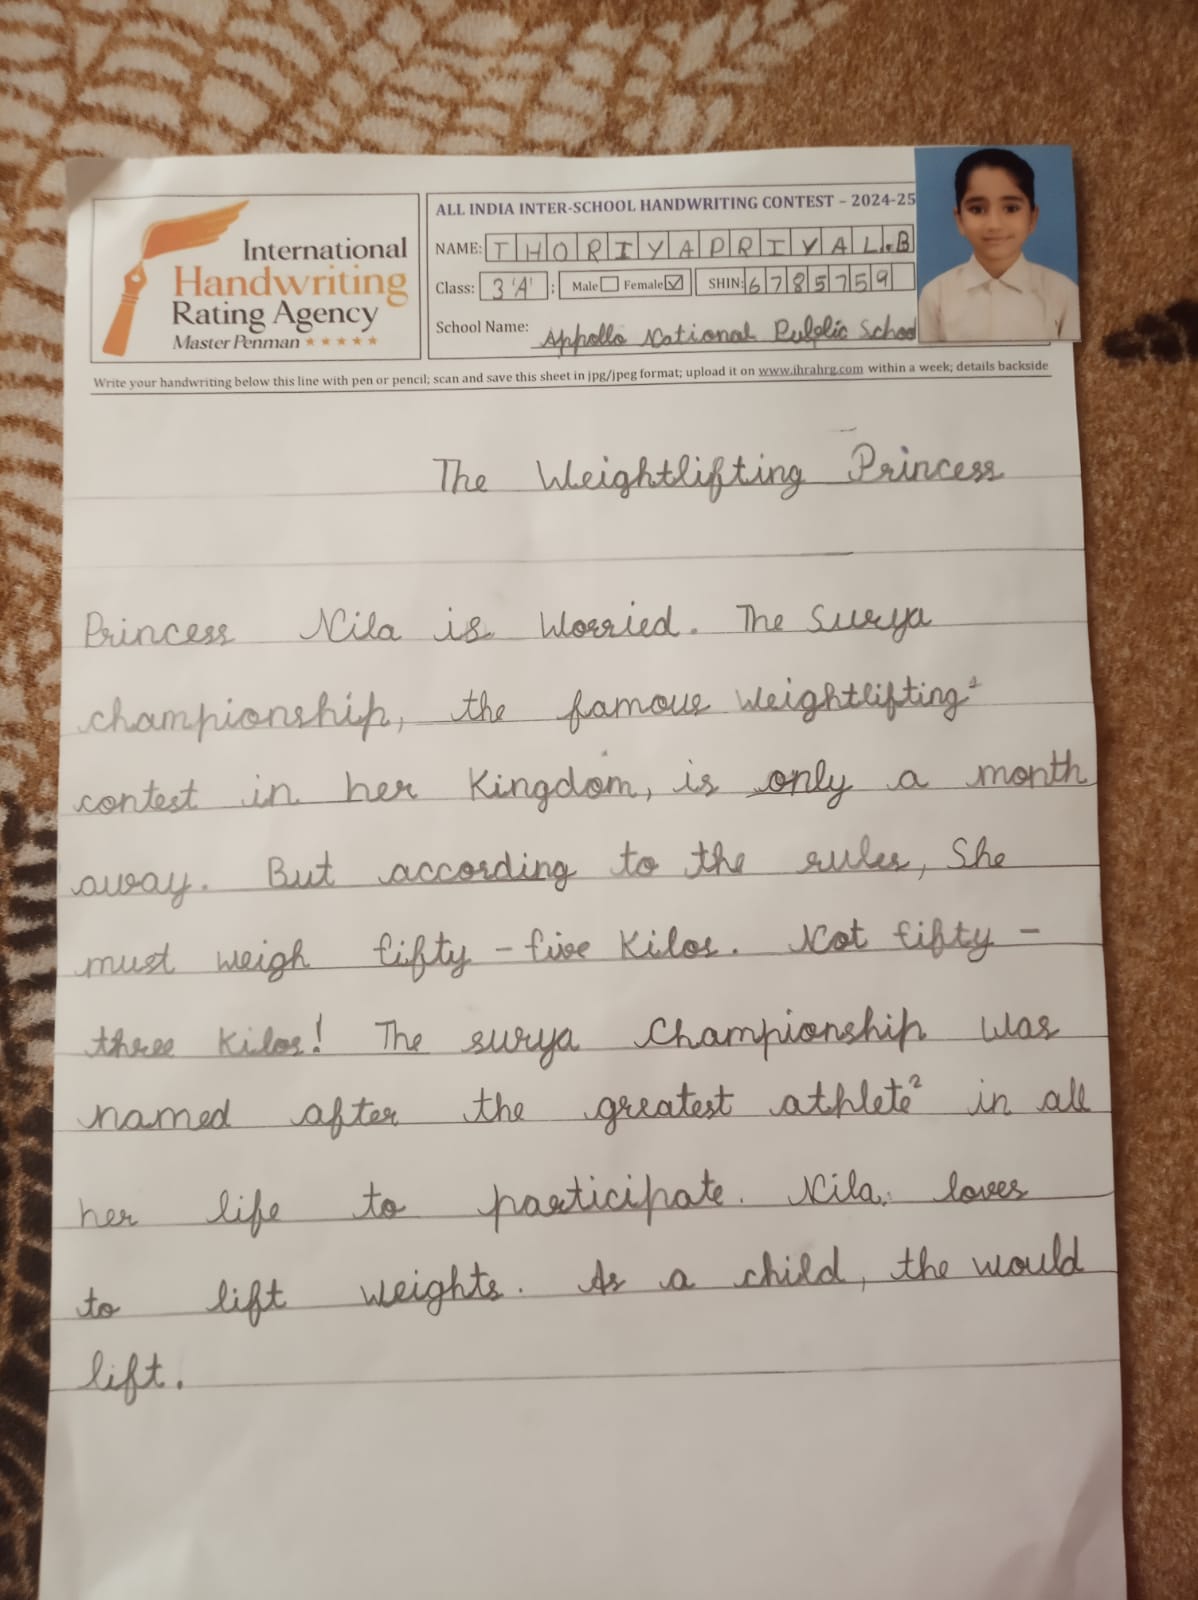 International
Handwriting
Rating Agency
Master Penman
ALL INDIA INTER-SCHOOL HANDWRITING CONTEST – 2024-25
NAME: THORIYAPRIYAL.B
Class: 3 'A' : Male Female SHIN: 6785759
School Name: Appollo National Public School
Write your handwriting below this line with pen or pencil; scan and save this sheet in jpg/jpeg format; upload it on www.ihrahrg.com within a week; details backside
The Weightlifting Princess
Princess Nila is Worried. The Surya
championship, the famous Weightlifting
contest in her Kingdom, is only a month
away. But according to the rules, She
must weigh fifty - five Kilos. Not fifty -
three Kilos! The surya Championship was
named after the greatest athlete² in all
her life to participate. Nila. loves
to lift weights. As a child, the would
lift.